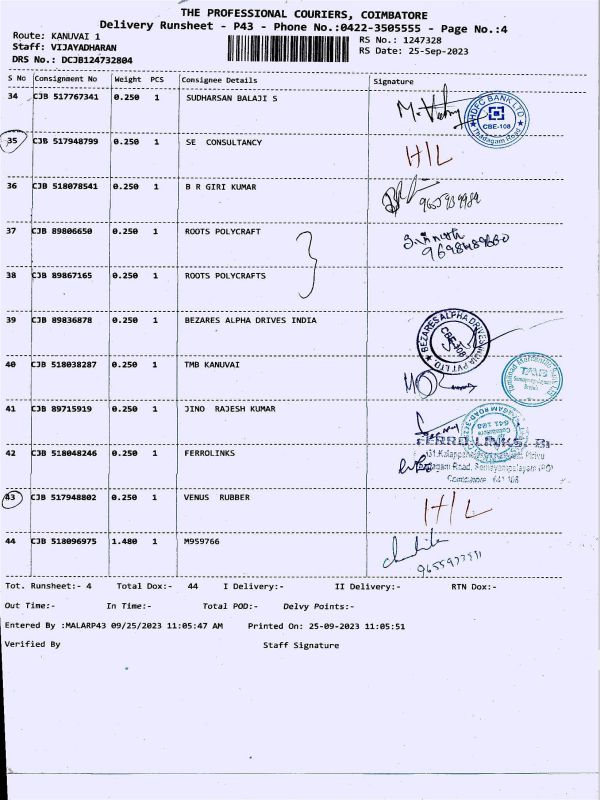 THE PROFESSIONAL COURIERS, COIMBATORE
Delivery Runsheet - P43 - Phone No.:0422-3505555 - Page No.:4
Route: KANUVAI 1 RS No.: 1247328
Staff: VIJAYADHARAN RS Date: 25-Sep-2023
DRS No.: DCJB124732804
S No Consignment No Weight PCS Consignee Details Signature
34 CJB 517767341 0.250 1 SUDHARSAN BALAJI S
HDFC BANK LTD
CBE-108
Thadagam Road
35 CJB 517948799 0.250 1 SE CONSULTANCY H/L
36 CJB 518078541 0.250 1 B R GIRI KUMAR
37 CJB 89806650 0.250 1 ROOTS POLYCRAFT
38 CJB 89867165 0.250 1 ROOTS POLYCRAFTS
39 CJB 89836878 0.250 1 BEZARES ALPHA DRIVES INDIA
BEZARES ALPHA DRIVES INDIA PVT LTD
CBE-108
40 CJB 518038287 0.250 1 TMB KANUVAI
Tamilnad Mercantile Bank Ltd
41 CJB 89715919 0.250 1 JINO RAJESH KUMAR
641 108
42 CJB 518048246 0.250 1 FERROLINKS
FERRO LINKS
Thadagam Road, Somayampalayam (PO)
Coimbatore - 641 108
43 CJB 517948802 0.250 1 VENUS RUBBER H/L
44 CJB 518096975 1.480 1 M959766
Tot. Runsheet:- 4 Total Dox:- 44 I Delivery:- II Delivery:- RTN Dox:-
Out Time:- In Time:- Total POD:- Delvy Points:-
Entered By :MALARP43 09/25/2023 11:05:47 AM Printed On: 25-09-2023 11:05:51
Verified By Staff Signature